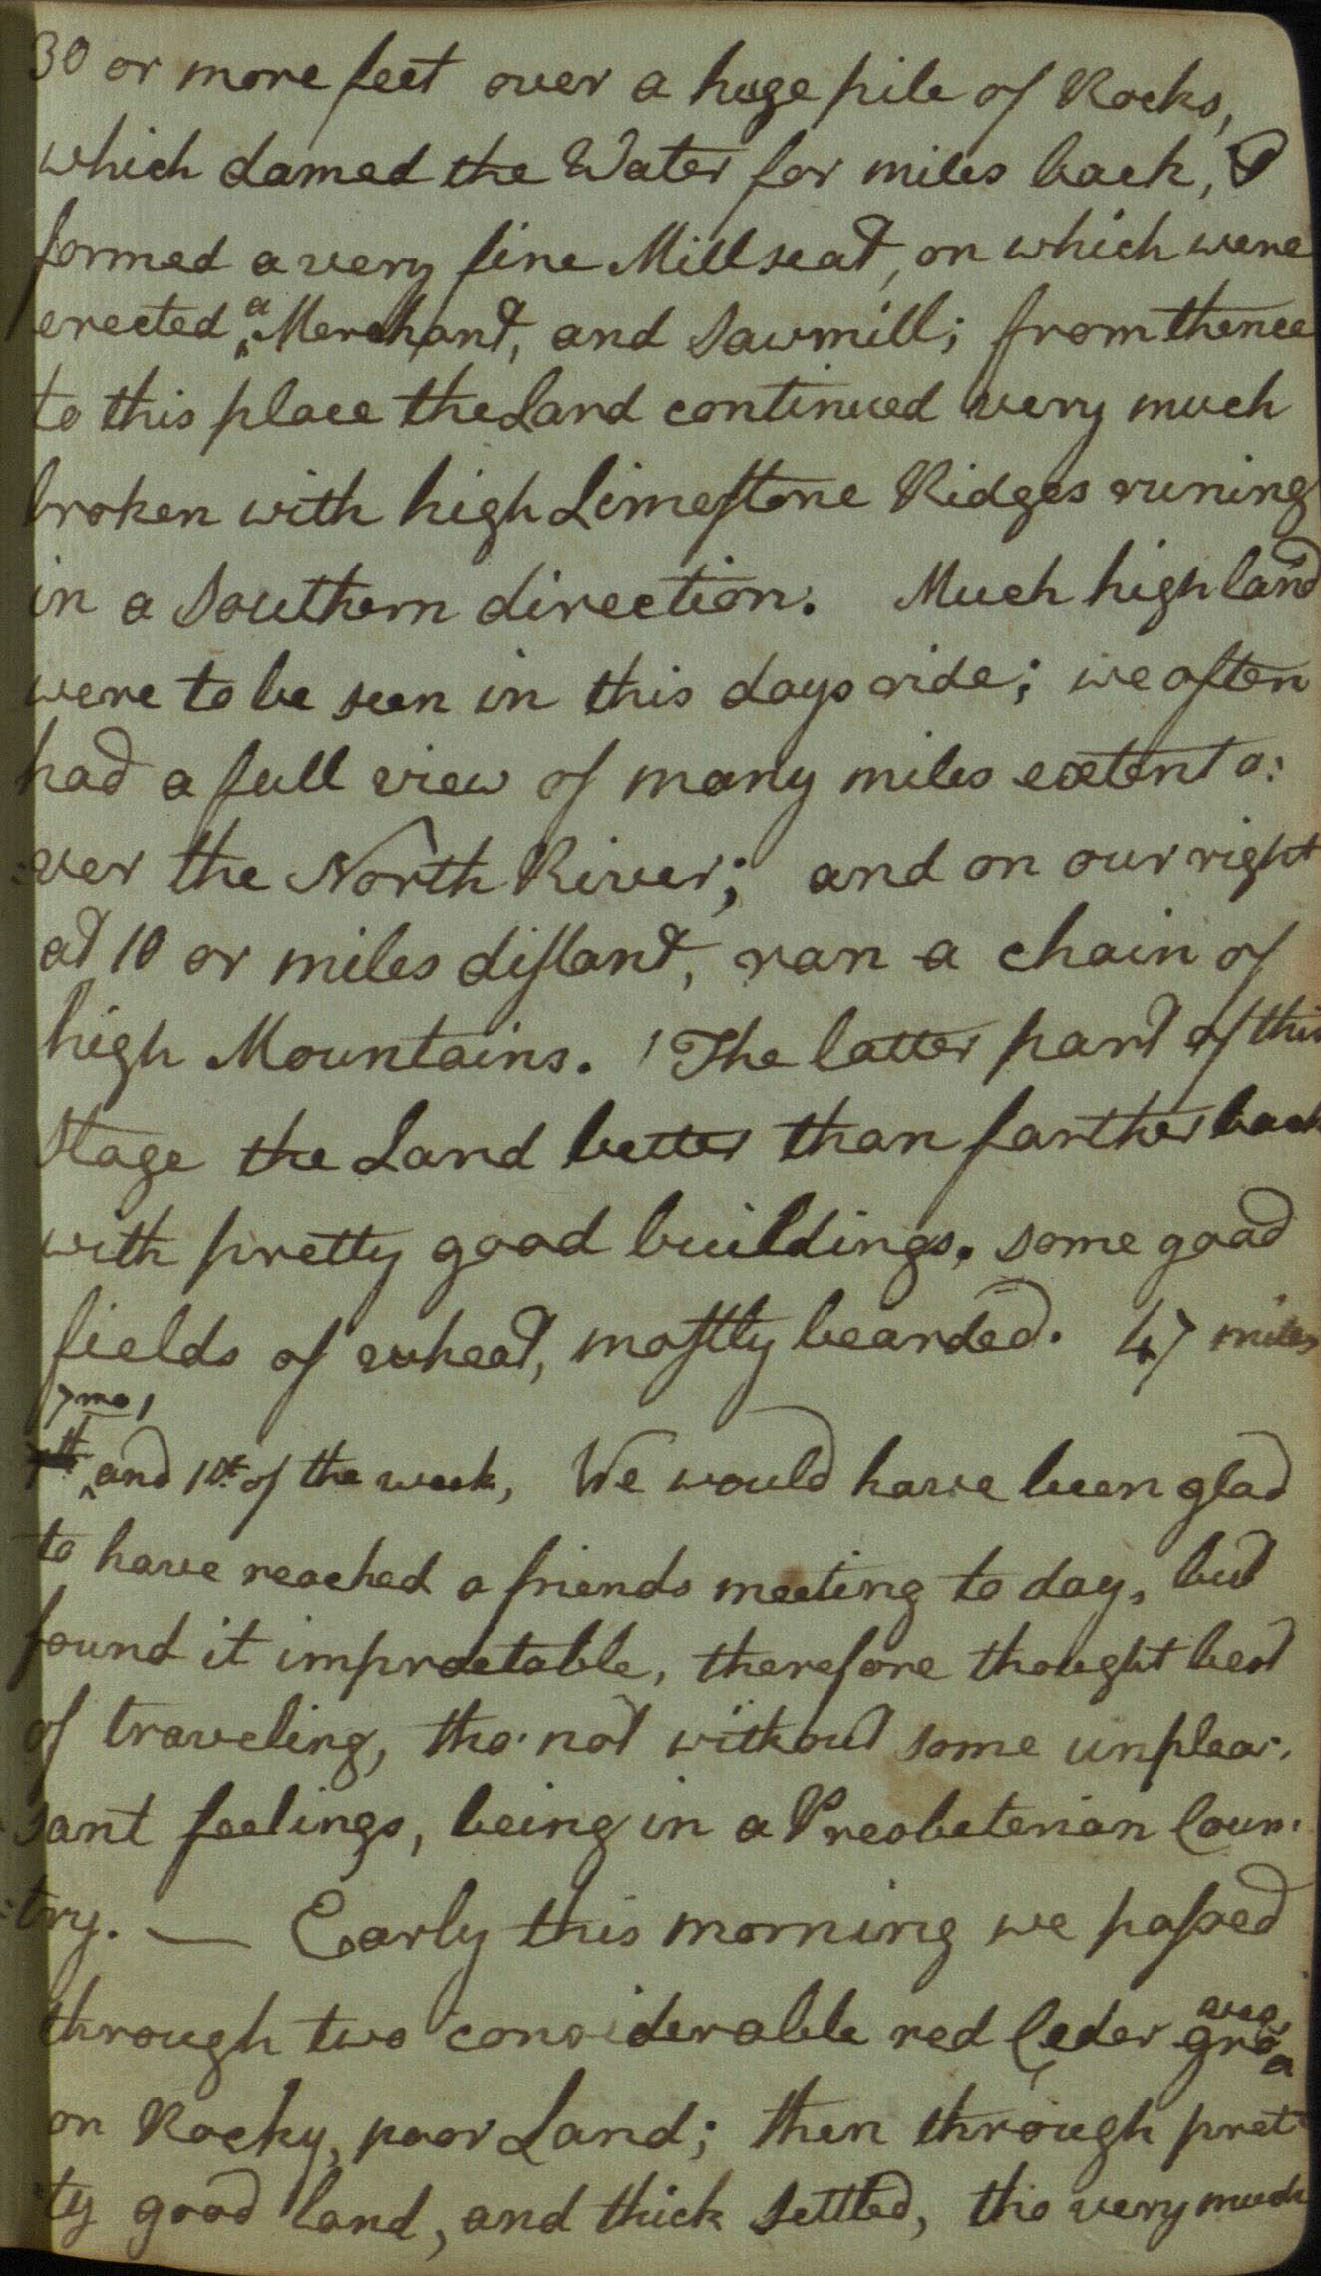 30 or more feet over a huge pile of Rocks,
which damed the Water for miles back, &
formed a very fine Millseat, on which were
erected a Merchant, and Sawmill; from thence
to this place the Land continued very much
broken with high Limestone Ridges runing
in a Southern direction. Much highland
were to be seen in this days ride; we often
had a full view of many miles extent o:
:ver the North River; and on our right
at 10 or miles distant, ran a chain of
high Mountains. The latter part of this
Stage the Land better than farther back
with pretty good buildings. some good
fields of wheat, mostly bearded. 47 miles
7mo,
7th and 1st of the week, We would have been glad
to have reached a friends meeting to day, but
found it impractable, therefore thought best
of traveling, tho' not without some unplea:
sant feelings, being in a Presbeterian Coun:
:try. — Early this morning we passed
through two considerable red Ceder groves
on Rocky, poor Land; then through pret
:ty good land, and thick settled, tho very much